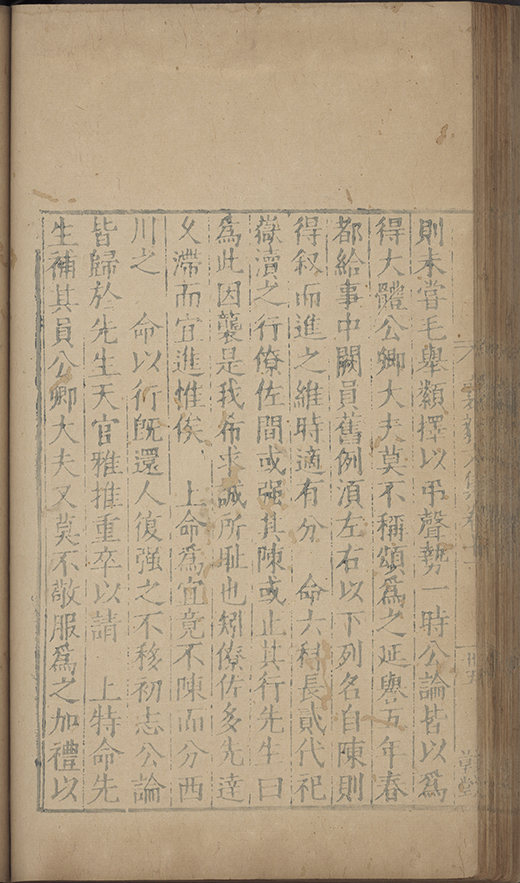 則未嘗毛舉纇擇以干聲勢一時公論皆以為
得大體公卿大夫莫不稱頌為之延譽五年春
都給事中闕員舊例須左右以下列名自陳則
得叙而進之維時適有分 命六科長貳代祀
嶽瀆之行僚佐間或强其陳或止其行先生曰
為此因襲是我布求誠所耻也矧僚佐多先達
久滯而宜進惟俟 上命為宜竟不陳而分西
川之 命以行既還人復强之不移初志公論
皆歸於先生天官雅推重卒以請 上特命先
生補其員公卿大夫又莫不敬服為之加禮以